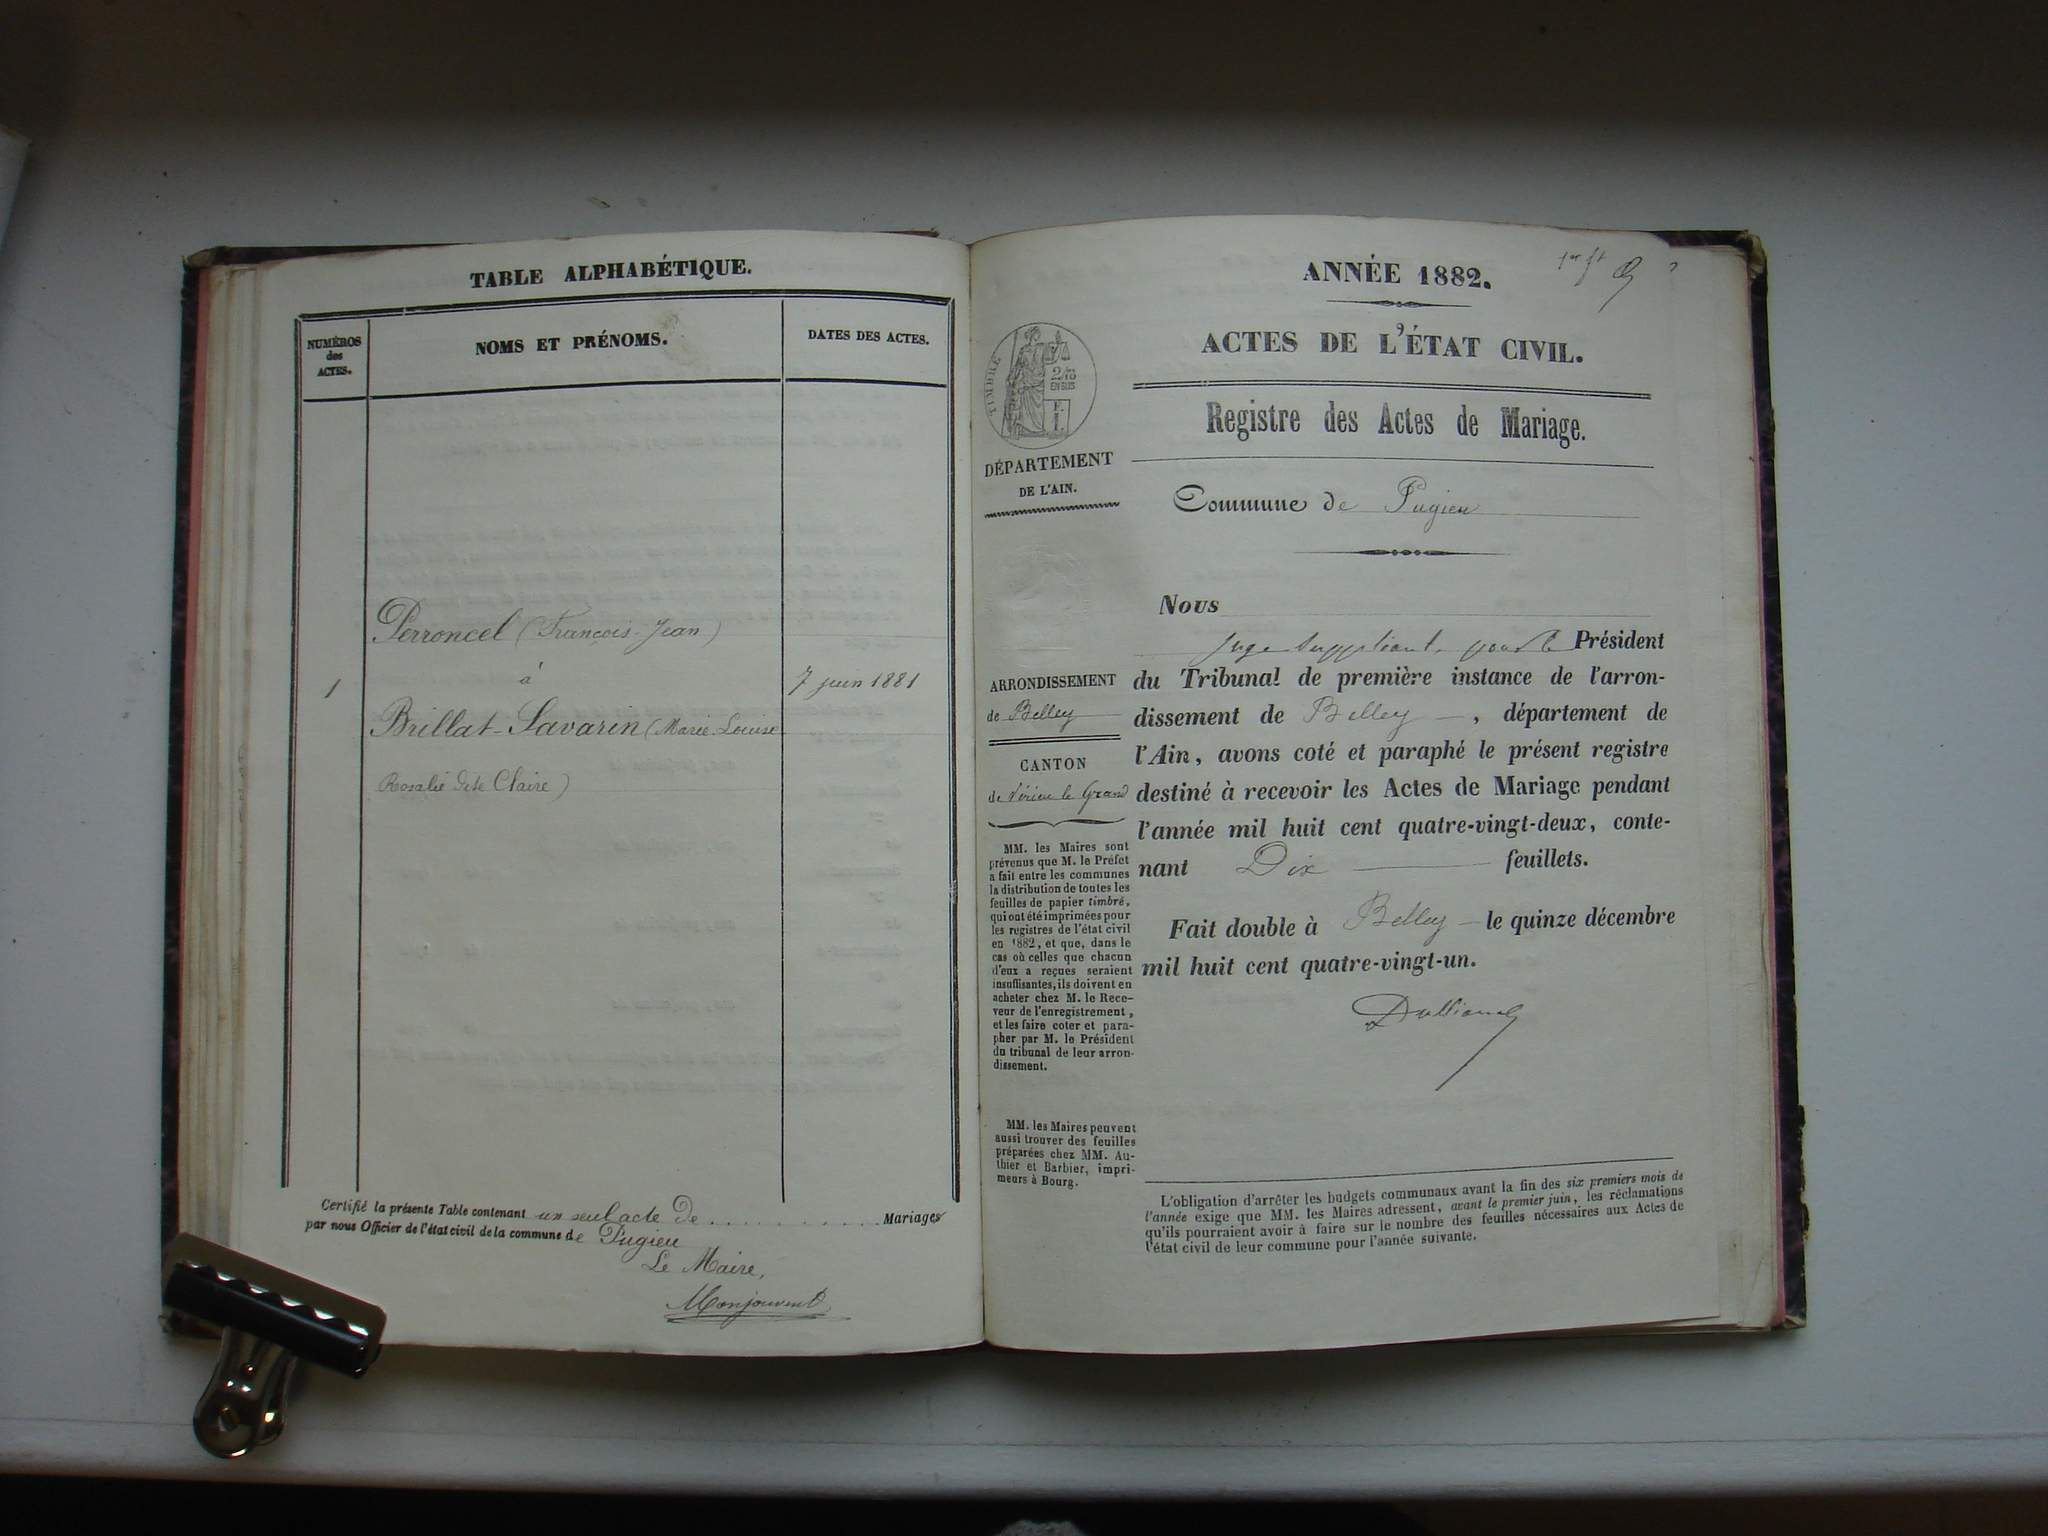 TABLE ALPHABÉTIQUE.
NUMÉROS
des
ACTES.
NOMS ET PRÉNOMS.
DATES DES ACTES.
Perroncel (François-Jean)
à
1
7 juin 1881
Brillat-Savarin (Marie-Louise-
Rosalie dite Claire)
Certifié la présente Table contenant un seul acte de ........... Mariages
par nous Officier de l'état civil de la commune de Pugieu
Le Maire,
Monjouvent
ANNÉE 1882.
ACTES DE L'ÉTAT CIVIL.
TIMBRE
2/10
EN SUS
Registre des Actes de Mariage.
DÉPARTEMENT
DE L'AIN.
Commune de Pugieu
Nous
juge suppléant, pour le Président
du Tribunal de première instance de l'arron-
dissement de Belley —, département de
l'Ain, avons coté et paraphé le présent registre
destiné à recevoir les Actes de Mariage pendant
l'année mil huit cent quatre-vingt-deux, conte-
nant Dix — feuillets.
Fait double à Belley — le quinze décembre
mil huit cent quatre-vingt-un.
ARRONDISSEMENT
de Belley
CANTON
de Virieu le Grand
MM. les Maires sont
prévenus que M. le Préfet
a fait entre les communes
la distribution de toutes les
feuilles de papier timbré,
qui ont été imprimées pour
les registres de l'état civil
en 1882, et que, dans le
cas où celles que chacun
d'eux a reçues seraient
insuffisantes, ils doivent en
acheter chez M. le Rece-
veur de l'enregistrement,
et les faire coter et para-
pher par M. le Président
du tribunal de leur arron-
dissement.
MM. les Maires peuvent
aussi trouver des feuilles
préparées chez MM. Au-
thier et Barbier, impri-
meurs à Bourg.
L'obligation d'arrêter les budgets communaux avant la fin des six premiers mois de
l'année exige que MM. les Maires adressent, avant le premier juin, les réclamations
qu'ils pourraient avoir à faire sur le nombre des feuilles nécessaires aux Actes de
l'état civil de leur commune pour l'année suivante.